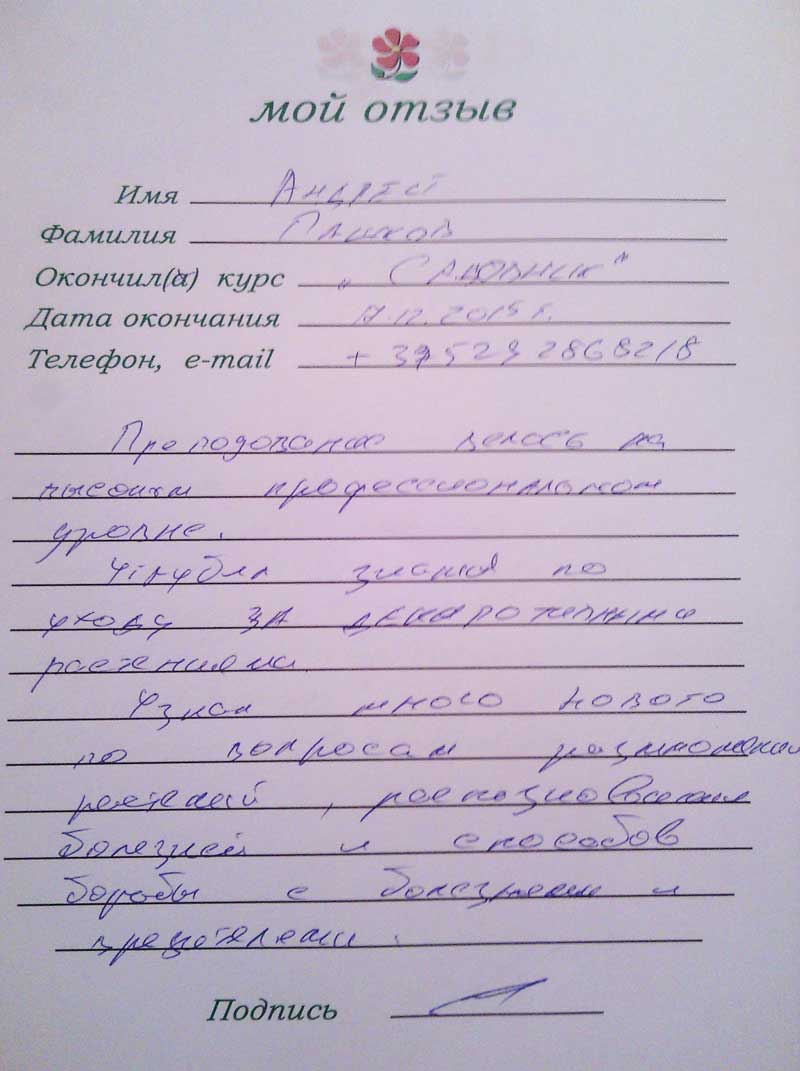 мой отзыв
Имя Андрей
Фамилия
Окончил(а) курс „Садовник"
Дата окончания 17.12.2015 г.
Телефон, e-mail
Преподавание велось на
высоким профессиональном
уровне.
Углубил знания по
уходу за декоротивными
растениями.
Узнал много нового
по вопросам размножения
растений,
болезней и способов
борьбы с болезнями и
вредителями.
Подпись